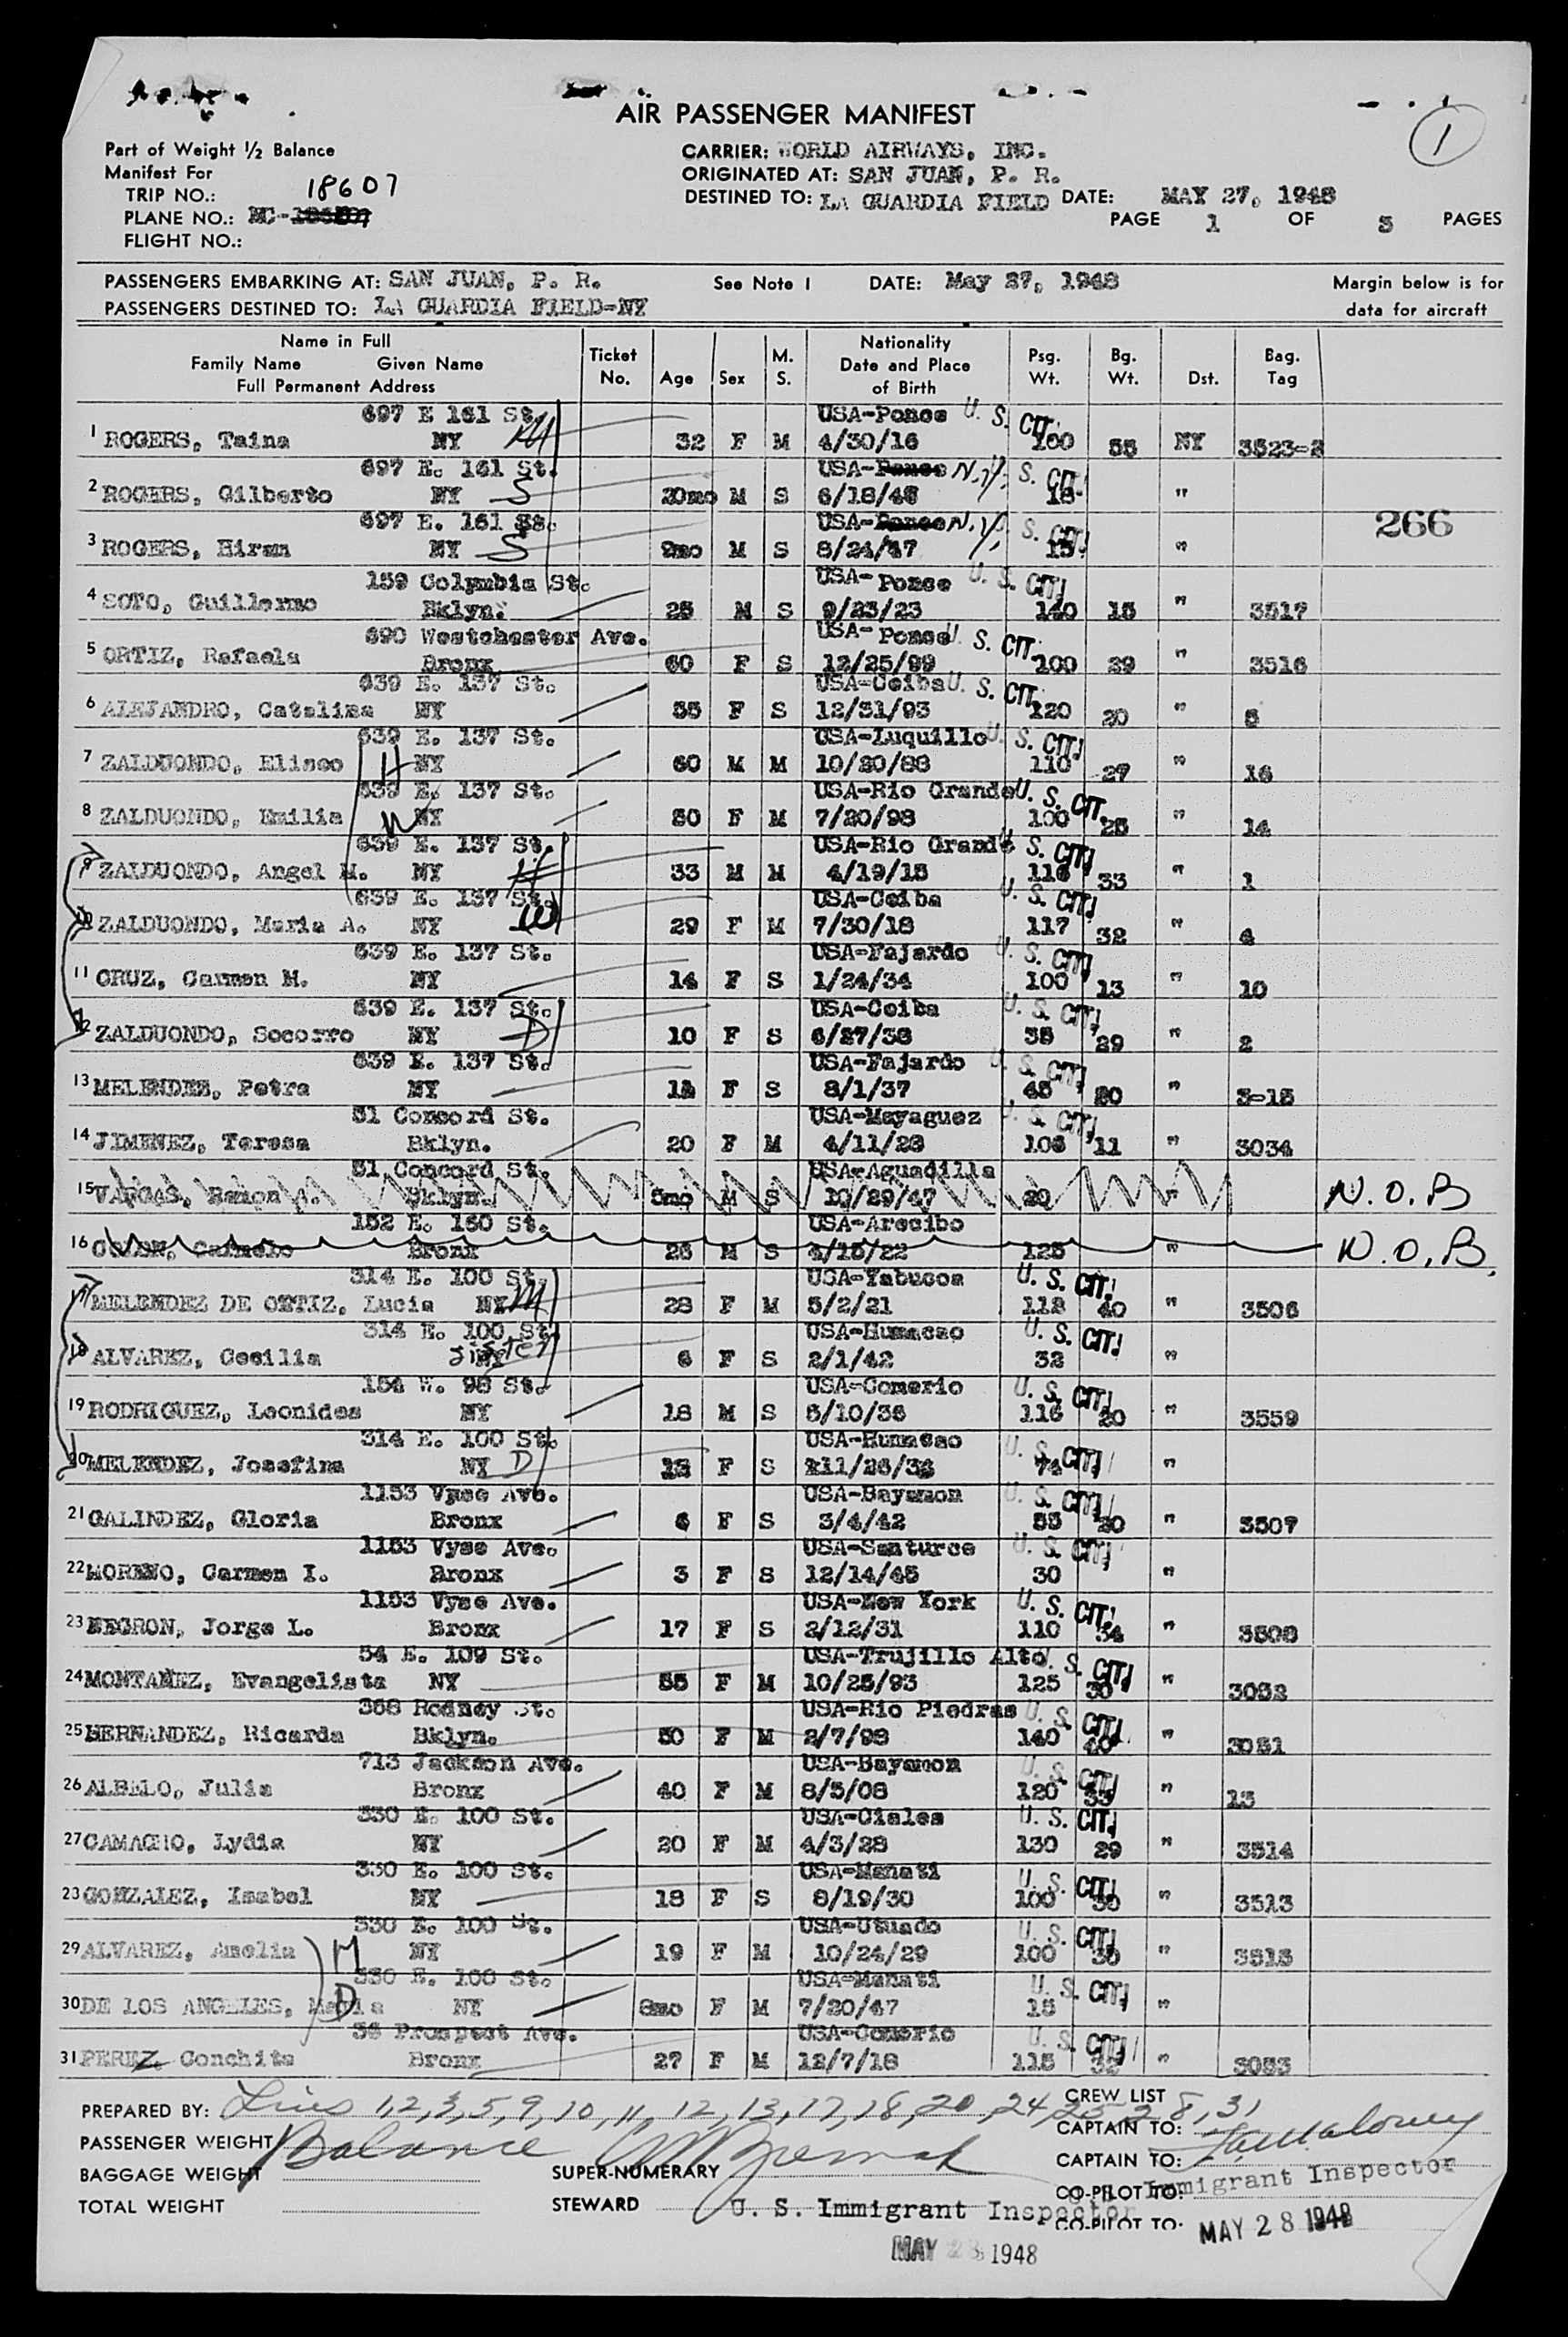 AIR PASSENGER MANIFEST
1
Part of Weight ½ Balance
Manifest For
TRIP NO.: 18607
PLANE NO.: NC-
FLIGHT NO.:
CARRIER: WORLD AIRWAYS, INC.
ORIGINATED AT: SAN JUAN, P. R.
DESTINED TO: LA GUARDIA FIELD DATE: MAY 27, 1948
PAGE 1 OF 3 PAGES
PASSENGERS EMBARKING AT: SAN JUAN, P. R. See Note 1 DATE: May 27, 1948
PASSENGERS DESTINED TO: LA GUARDIA FIELD-NY
Margin below is for
data for aircraft
Name in Full
Family Name Given Name
Full Permanent Address
Ticket No. Age Sex M. S. Nationality Date and Place of Birth Psg. Wt. Bg. Wt. Dst. Bag. Tag
697 E 161 St. USA-Ponce U. S. CIT.
1 ROGERS, Taina NY M 32 F M 4/30/16 100 55 NY 3523-2
697 E. 161 St. USA-Ponce N.Y. U. S. CIT.
2 ROGERS, Gilberto NY S 20mo M S 6/18/46 18 "
697 E. 161 St. USA-Ponce N.Y. U. S. CIT.
3 ROGERS, Hiram NY S 9mo M S 8/24/47 15 "
266
159 Columbia St. USA-Ponce U. S. CIT.
4 SOTO, Guillermo Bklyn. 25 M S 9/23/23 140 15 " 3517
690 Westchester Ave. USA-Ponce U. S. CIT.
5 ORTIZ, Rafaela Bronx 60 F S 12/25/99 100 29 " 3516
639 E. 137 St. USA-Ceiba U. S. CIT.
6 ALEJANDRO, Catalina NY 55 F S 12/31/93 120 20 " 5
639 E. 137 St. USA-Luquillo U. S. CIT.
7 ZALDUONDO, Eliseo H NY 60 M M 10/20/88 110 27 " 16
639 E. 137 St. USA-Rio Grande U. S. CIT.
8 ZALDUONDO, Emilia W NY 50 F M 7/20/98 100 25 " 14
639 E. 137 St. USA-Rio Grande U. S. CIT.
9 ZALDUONDO, Angel M. NY H 33 M M 4/19/15 116 33 " 1
639 E. 137 St. USA-Ceiba U. S. CIT.
10 ZALDUONDO, Maria A. NY W 29 F M 7/30/18 117 32 " 4
639 E. 137 St. USA-Fajardo U. S. CIT.
11 CRUZ, Carmen M. NY 14 F S 1/24/34 100 13 " 10
639 E. 137 St. USA-Ceiba U. S. CIT.
12 ZALDUONDO, Socorro NY D 10 F S 6/27/38 38 29 " 2
639 E. 137 St. USA-Fajardo U. S. CIT.
13 MELENDES, Petra NY F S 8/1/37 45 20 " 3-15
31 Concord St. USA-Mayaguez U. S. CIT.
14 JIMENEZ, Teresa Bklyn. 20 F M 4/11/28 106 11 " 3034
31 Concord St. USA-Aguadilla
15 VARGAS, Ramon A. Bklyn. M S 10/29/47 20 " N.O.B
152 E. 160 St. USA-Arecibo
16 COLON, Carmelo Bronx 26 M S 4/15/22 125 " N.O.B.
314 E. 100 St. USA-Yabucoa U. S. CIT.
17 MELENDEZ DE ORTIZ, Lucia NY M 28 F M 5/2/21 118 40 " 3506
314 E. 100 St. USA-Humacao U. S. CIT.
18 ALVAREZ, Cecilia NY sister 6 F S 2/1/42 32 "
154 W. 98 St. USA-Comerio U. S. CIT.
19 RODRIGUEZ, Leonides NY 18 M S 6/10/36 116 20 " 3559
314 E. 100 St. USA-Humacao U. S. CIT.
20 MELENDEZ, Josefina NY D F S 11/26/ 74 "
1153 Vyse Ave. USA-Bayamon U. S. CIT.
21 GALINDEZ, Gloria Bronx 6 F S 3/4/42 55 20 " 3507
1153 Vyse Ave. USA-Santurce U. S. CIT.
22 MORENO, Carmen I. Bronx 3 F S 12/14/45 30 "
1153 Vyse Ave. USA-New York U. S. CIT.
23 NEGRON, Jorge L. Bronx 17 F S 2/12/31 110 34 " 3508
54 E. 109 St. USA-Trujillo Alto U. S. CIT.
24 MONTAÑEZ, Evangelista NY 55 F M 10/25/93 125 30 " 3052
368 Rodney St. USA-Rio Piedras U. S. CIT.
25 HERNANDEZ, Ricarda Bklyn. 50 F M 2/7/98 140 40 " 3051
713 Jackson Ave. USA-Bayamon U. S. CIT.
26 ALBELO, Julia Bronx 40 F M 8/5/08 120 35 " 13
330 E. 100 St. USA-Ciales U. S. CIT.
27 CAMACHO, Lydia NY 20 F M 4/3/28 130 29 " 3514
330 E. 100 St. USA-Manati U. S. CIT.
28 GONZALEZ, Isabel NY 18 F S 8/19/30 100 30 " 3513
330 E. 100 St. USA-Utuado U. S. CIT.
29 ALVAREZ, Amelia M NY 19 F M 10/24/29 100 30 " 3515
330 E. 100 St. USA-Manati U. S. CIT.
30 DE LOS ANGELES, Maria D NY 8mo F M 7/20/47 15 "
36 Prospect Ave. USA-Comerio U. S. CIT.
31 PEREZ, Conchita Bronx 27 F M 12/7/18 115 32 " 3053
PREPARED BY: Lines 1,2,3,5,9,10,11,12,13,17,18,20,24,25,28,31,
PASSENGER WEIGHT Balance
BAGGAGE WEIGHT
TOTAL WEIGHT
SUPER-NUMERARY
STEWARD U. S. Immigrant Inspector
MAY 28 1948
CREW LIST
CAPTAIN TO:
CAPTAIN TO:
CO-PILOT TO: Immigrant Inspector
CO-PILOT TO: MAY 28 1948